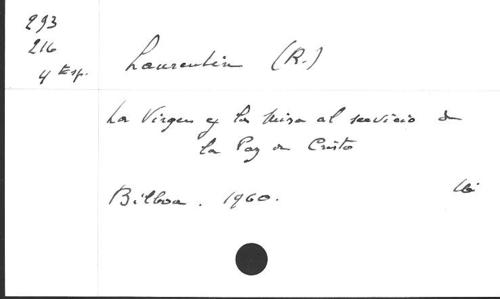 293
216
4 Esp.
Laurentin (R.)
La Virgen y la Misa al servicio de
la Paz de Cristo
Bilboa. 1960.